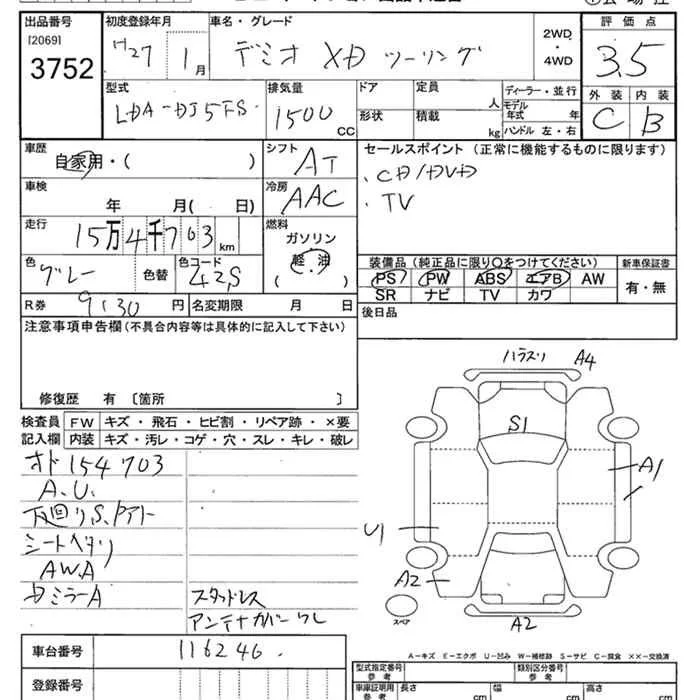 出品番号
[2069]
3752
初度登録年月
H27年 1月
車名・グレード
デミオ XD ツーリング
2WD・4WD
評価点
3.5
外装 内装
C B
型式
LDA-DJ5FS
排気量
1500 cc
ドア
形状
定員 人
積載 kg
ディーラー・並行
モデル年式 年
ハンドル 左・右
車歴
自家用・( )
シフト
AT
車検
年 月( 日)
冷房
AAC
走行
15万4千703 km
燃料
ガソリン
軽油
( )
色
グレー
色替
色コード
42S
R券
9,130円
名変期限 月 日
セールスポイント(正常に機能するものに限ります)
・CD/DVD
・TV
装備品(純正品に限り○をつけてください)
PS PW ABS エアB AW
SR ナビ TV カワ
新車保証書
有・無
後日品
注意事項申告欄(不具合内容等は具体的に記入して下さい)
修復歴 有〔箇所 〕
検査員記入欄
FW キズ・飛石・ヒビ割・リペア跡・×要
内装 キズ・汚レ・コゲ・穴・スレ・キレ・破レ
オド154703
A.U.
下回りS,Pアト
シートヘタリ
AWA
Dミラ-A
スタッドレス
アンテナカバーワレ
ハラスリ A4
S1
A1
U1
A2
A2
スペア
A-キズ E-エクボ U-凹み W-補修跡 S-サビ C-腐食 ××-交換済
車台番号
116246
登録番号
型式指定番号 参考
類別区分番号 参考
車庫証明用 参考
長さ cm
幅 cm
高さ cm